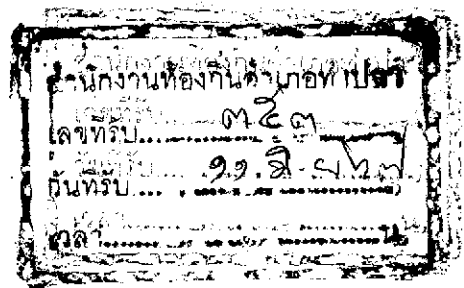 สำนักงานท้องถิ่นอำเภอท่าปลา
เลขที่รับ ๓๕๓
วันที่รับ ๑๑
เวลา น.